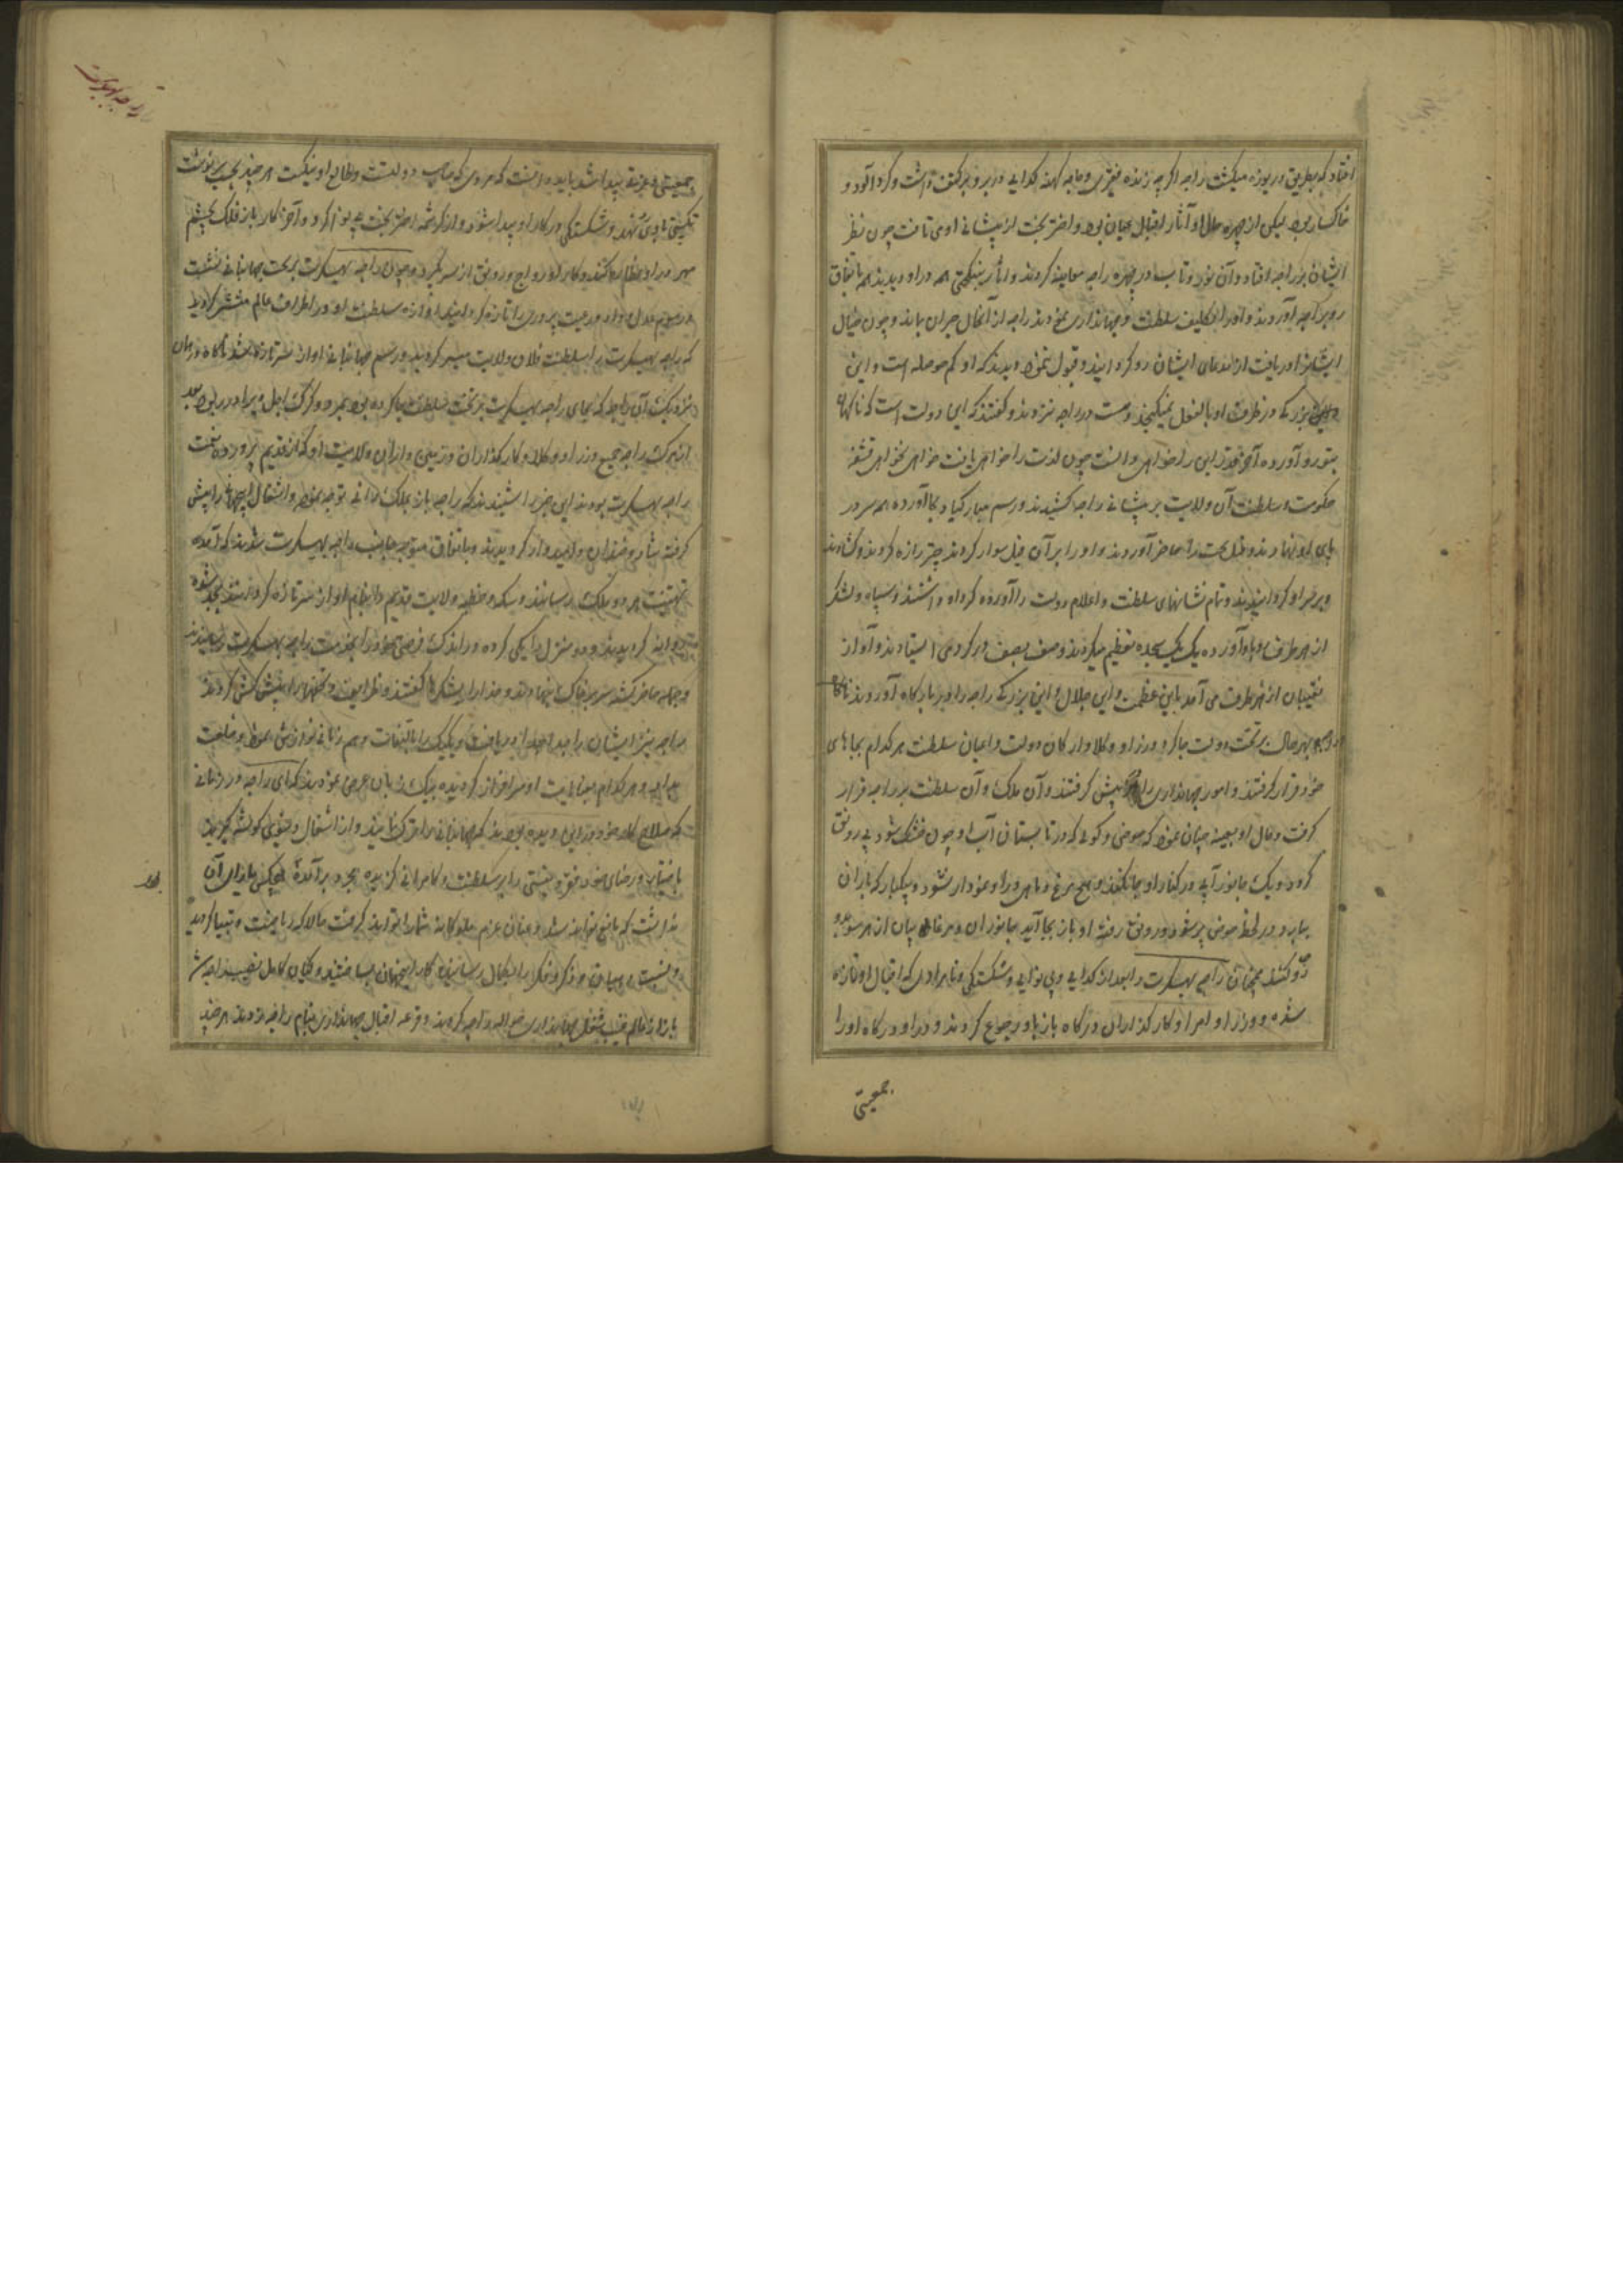 افتاد که بطریق دریوزه میکشت راجه اگرچه ژنده فقیری و جامه کهنه کدایی در بر و بر کتف داشت و کرد آلود و
خاکسار بود لیکن از چهره حال او آثار اقبال عیان بود و اختر بخت از پیشانی او می تافت چون نظر
ایشان بر راجه افتاد و آن نور و تاب در چهره راجه معاینه کردند و آثار نیکبختی همه در او دیدند همه باتفاق
رو براجه آوردند و او را تکلیف سلطنت و جهانداری نمودند راجه از آنحال حیران بماند و چون خیال
ایشانرا دریافت از مدعای ایشان رو کردانید و قبول ننمود دیدند که او کم حوصله است و این
بزرکی در ظرف او بالفعل نمیکنجد دست در راجه زدند و کفتند که این دولت است که ناکهان
بتو رو آورده آخر قدر این را خواهی دانست چون لذت را خواهی یافت
حکومت و سلطنت آن ولایت بر پیشانی راجه کشیدند و رسم مبارکباد بجا آورده همه سر در
پای او نهادند و فیل تخت را حاضر آوردند و او را بر آن فیل سوار کردند چتر راست کردند و کشادند
و بر سر او کردانیدند و تمام نشانهای سلطنت و اعلام دولت را آورده کرد او داشتند و سپاه و لشکر
از هر طرف رو باو آورده یک یک سجده تعظیم میکردند و صف بصف در کرد می ایستادند و آواز
نقیبان از هر طرف می آمد باین عظمت و این جلال و این بزرکی راجه را بر بارکاه آوردند
بهر حال بر تخت دولت جا کرد و وزرا و وکلا و ارکان دولت و اعیان سلطنت هر کدام بجاهای
خود قرار کرفتند و امور جهانداری را پیش کرفتند و آن ملک و آن سلطنت بر راجه قرار
کرفت و حال او بعینه چنان نمود که حوضی و کولی که در تابستان آب او چون خشک شود بی رونق
کردد و یک جانور آبی در کنار او جا نکند و هیچ مرغ و ماهی در او نمودار نشود و یکبار که باران
ببارد و در لحظه حوض پر شود و رونق رفته او باز بجا آید جانوران و مرغان آبی از هر سو
رو کنند همچنان راجه بهیکرت را بعد از کدایی و بی نوایی و شکستکی و نامرادی که اقبال او تازه
شده و وزرا و امرا و کارکذاران درکاه باز باو رجوع کردند و در او درکاه او را
جمعیتی
جمعیتی و عزتی پیدا شد باید دانست که هر کس که صاحب دولت و طالع او نیکست هر چند بحسب سرنوشت
نکبتی باو رسد و شکستکی در کار او پیدا شود و از کرشمه اختر بخت بی نوا کردد آخر کار باز فلک بچشم
مهر در او نظاره کند و کار او رواج و رونق از سر کیرد و چون راجه بهیکرت بر تخت جهانبانی نشست
و رسوم عدل و داد و رعیت پروری را تازه کردانید آوازه سلطنت او در اطراف عالم منتشر کردید
که راجه بهیکرت را سلطنت فلان ولایت میسر کردید و رسم جهانبانی او از سر تازه شد ناکاه در همان
نزدیکی آن راجه که بجای راجه بهیکرت بر تخت سلطنت جا کرده بود بمرد و کرک اجل او را در ربود بعد
از مرک راجه جمیع وزرا و وکلا و کارکذاران و زمین داران ولایت او که از قدیم پرورده نعمت
راجه بهیکرت بودند این خبر را شنیدند که راجه باز بملک رانی توجه نموده و اشتغال این مهم را پیش
کرفته شاد و خندان و امیدوار کردیدند و باتفاق متوجه جانب راجه بهیکرت شدند که آمده
تهنیت هر دو ملک رسانند و سکه و خطبه ولایت قدیم را بنام او از سر تازه کردانند
روانه کردیدند و دو منزل را یکی کرده در اندک فرصتی خود را بخدمت راجه بهیکرت رسانیدند
و جمله حاضر کشته سر بر خاک نهادند و خدا را شکرها کفتند و ظرایف و تحفها را پیشکش کردند
راجه نیز ایشان را جدا جدا دریافت و یک یک را بالتفات و هم زبانی نوازش نمود و خلعت
داد و هر کدام بعنایت او سرافراز کردیده بیک زبان عرض نمودند که ای راجه در زمانی
که صلاح کار خود در این دیده بودند که جهانبانی را ترک نمایند و از اشتغال دنیوی کوشه کیرند
باختیار و رضای خود فقر و نیستی را بر سلطنت و کامرانی کزیده مجرد بر آمده هیچکس یارای آن
نداشت که مانع تواند شد و عنان عزم ملوکانه شما را تواند کرفت حالا که ریاضت بسیار کردید
و ذکر و فکر را بکمال رسانیدید
باز از عالم غیب شغل جهانداری حواله راجه کردند و قرعه اقبال جهانداری بنام راجه زدند هر چند